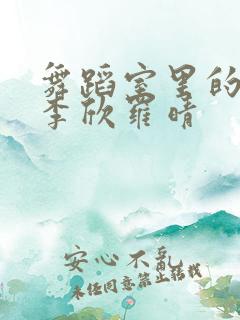 舞蹈室里的
李欣罗晴
安心不乱
未经同意禁止转载